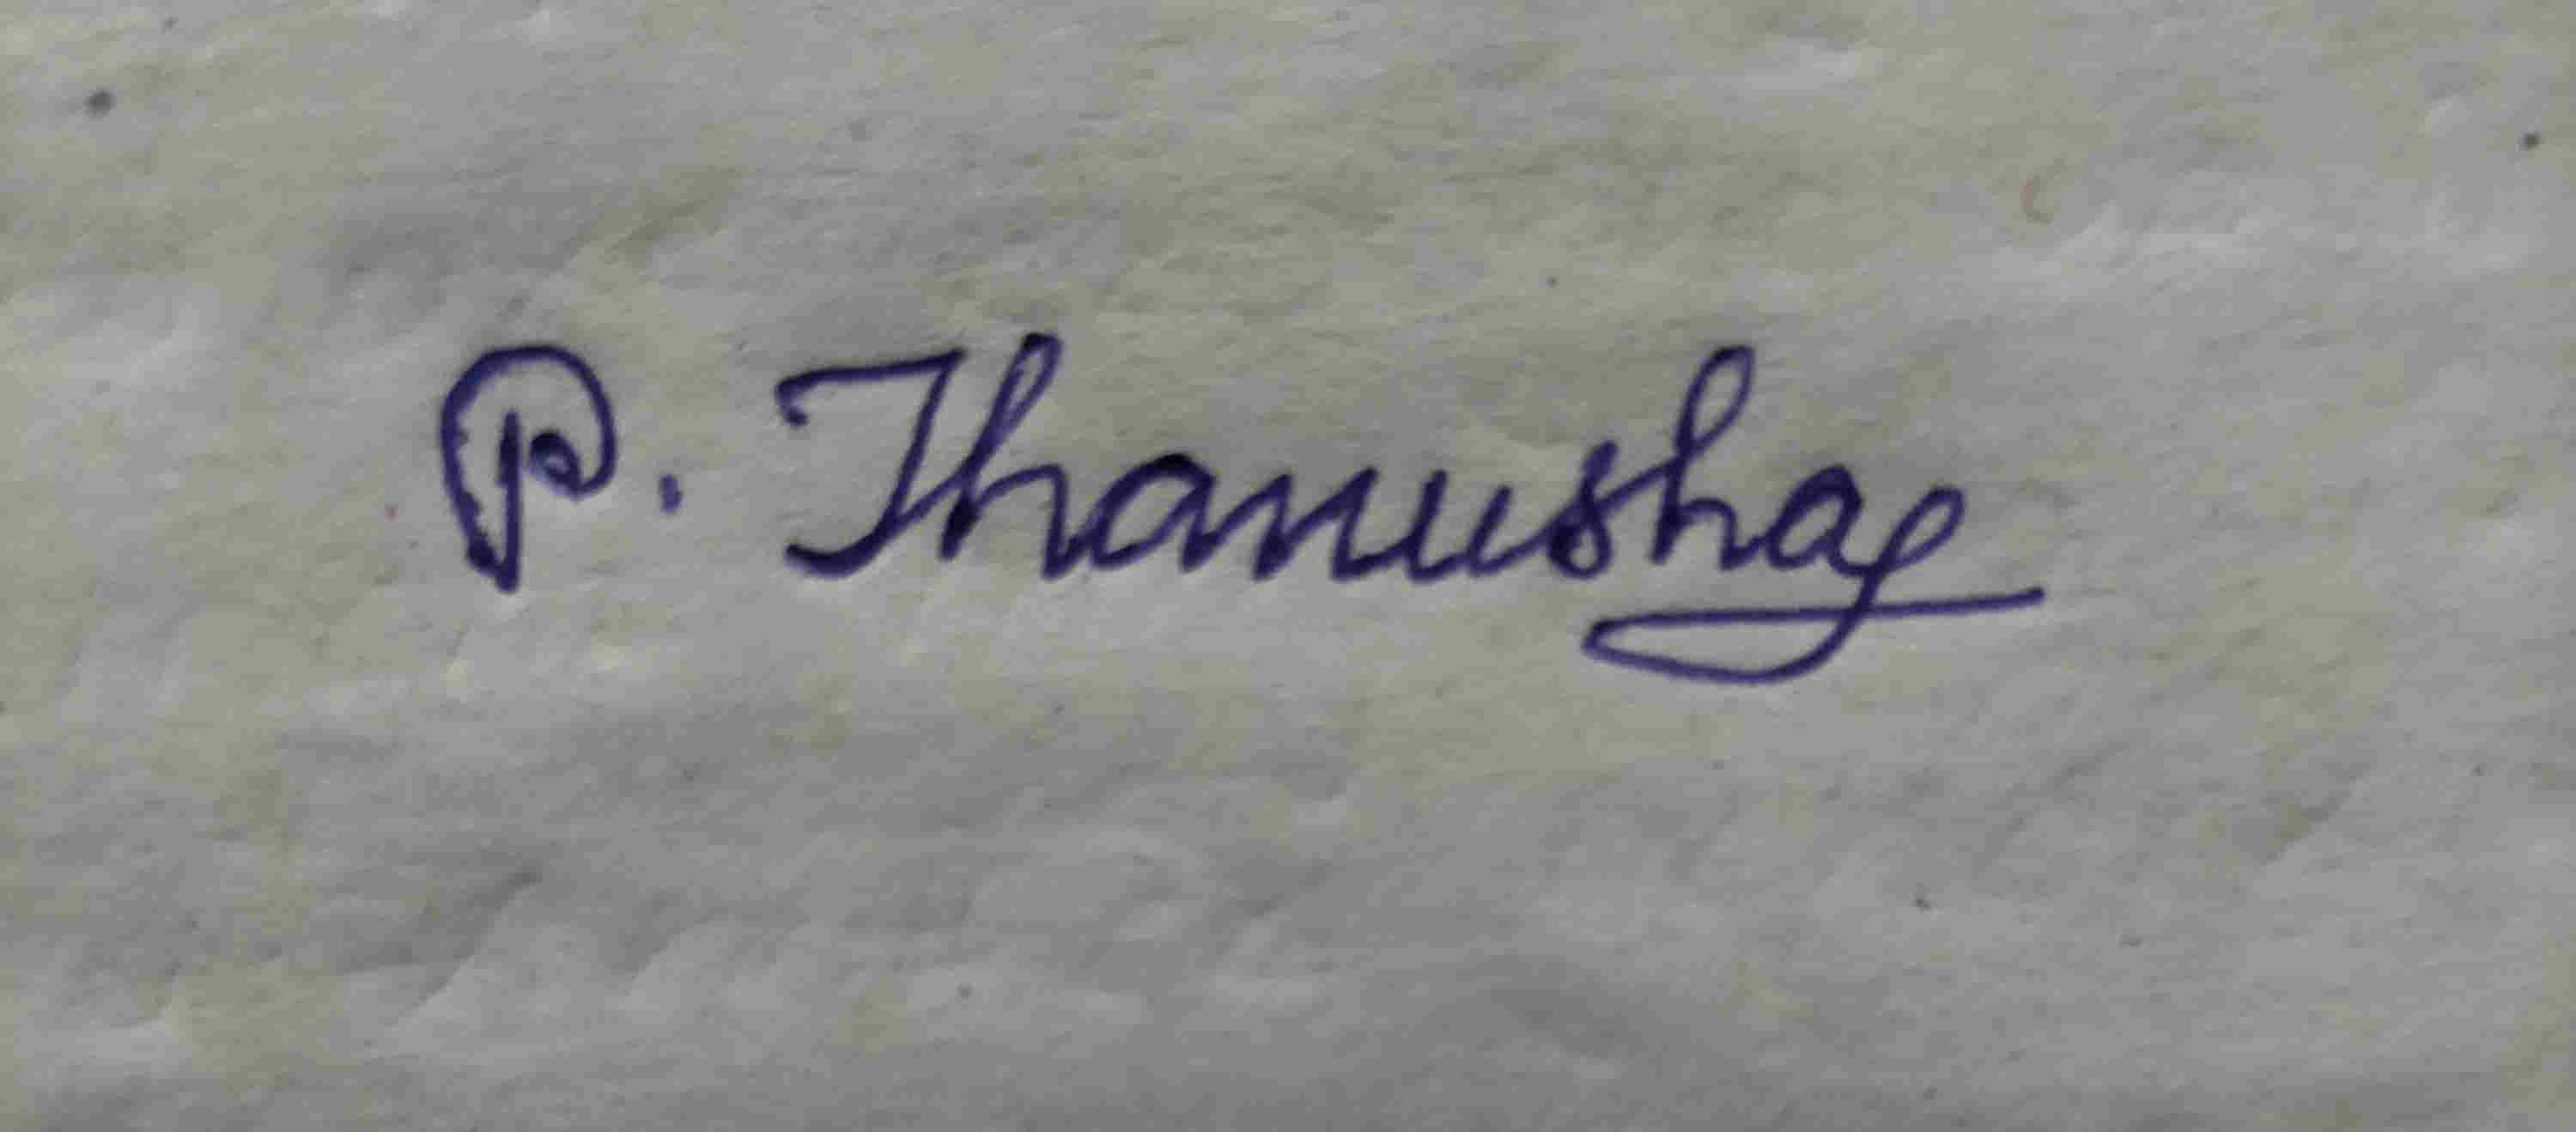 P. Thanusha